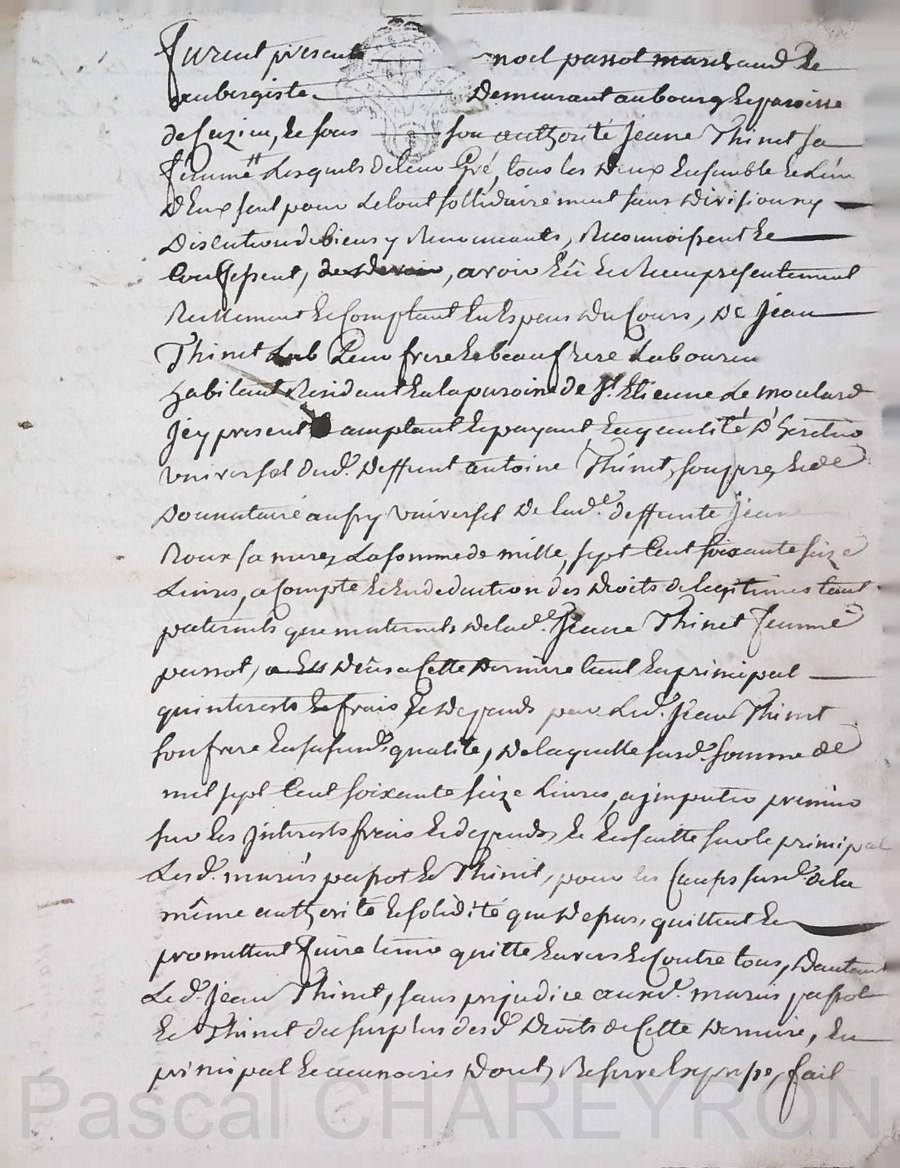 furent presents noel passot marchand Et
aubergiste Demeurant au bourg Et paroisse
de Cuzieu, Et sous son authorité Jeane Thinet sa
femme Lesquels de leur Gré, tous les Deux Ensemble Et L'un
D'Eux seul pour Le tout sollidairement sans Division ny
Discution de biens y Renoncants, Reconnoissent Et
Confessent, avoir Eû Et Reçeu presentement
Réellement Et Comptant En Especes Du Cours, De Jean
Thinet Leur frere Et beau frere Laboureur
habitant Residant En la paroisse de St. Etienne Le moulard
Jcy present acceptant Et payant En qualité D'heritier
Universel dud. Deffunt antoine Thinet, son pere, Et de
Donnataire aussy Universel De lad.e deffunte Jeanne
Roux sa mere, La somme de mille, sept Cent soixante seize
Livres, a Compte Et En deduction des Droits de legitimes tant
paternels que maternels De lad.e Jeane Thinet femme
passot, Dûs a Cette Derniere tant En principal
qu'interests Et frais Et Depends par Led. Jean Thinet
son frere En sa susd. qualité, De laquelle susd. somme de
mil sept Cent soixante seize Livres, a jmputer premier
sur Les Jnterests frais Et depends, Et Ensuitte sur le principal
Lesd. mariés passot Et Thinet, pour les Causes susd. de la
même authorité Et solidité que Dessus, quittent Et
promettent faire tenir quitte Envers Et Contre tous,
Led. Jean Thinet, sans prejudice auxd. mariés passot
Et Thinet du surplus desd. Droits de Cette Derniere, En
principal Et accessoires Dont, Reserve Expresse, fait
Pascal CHAREYRON